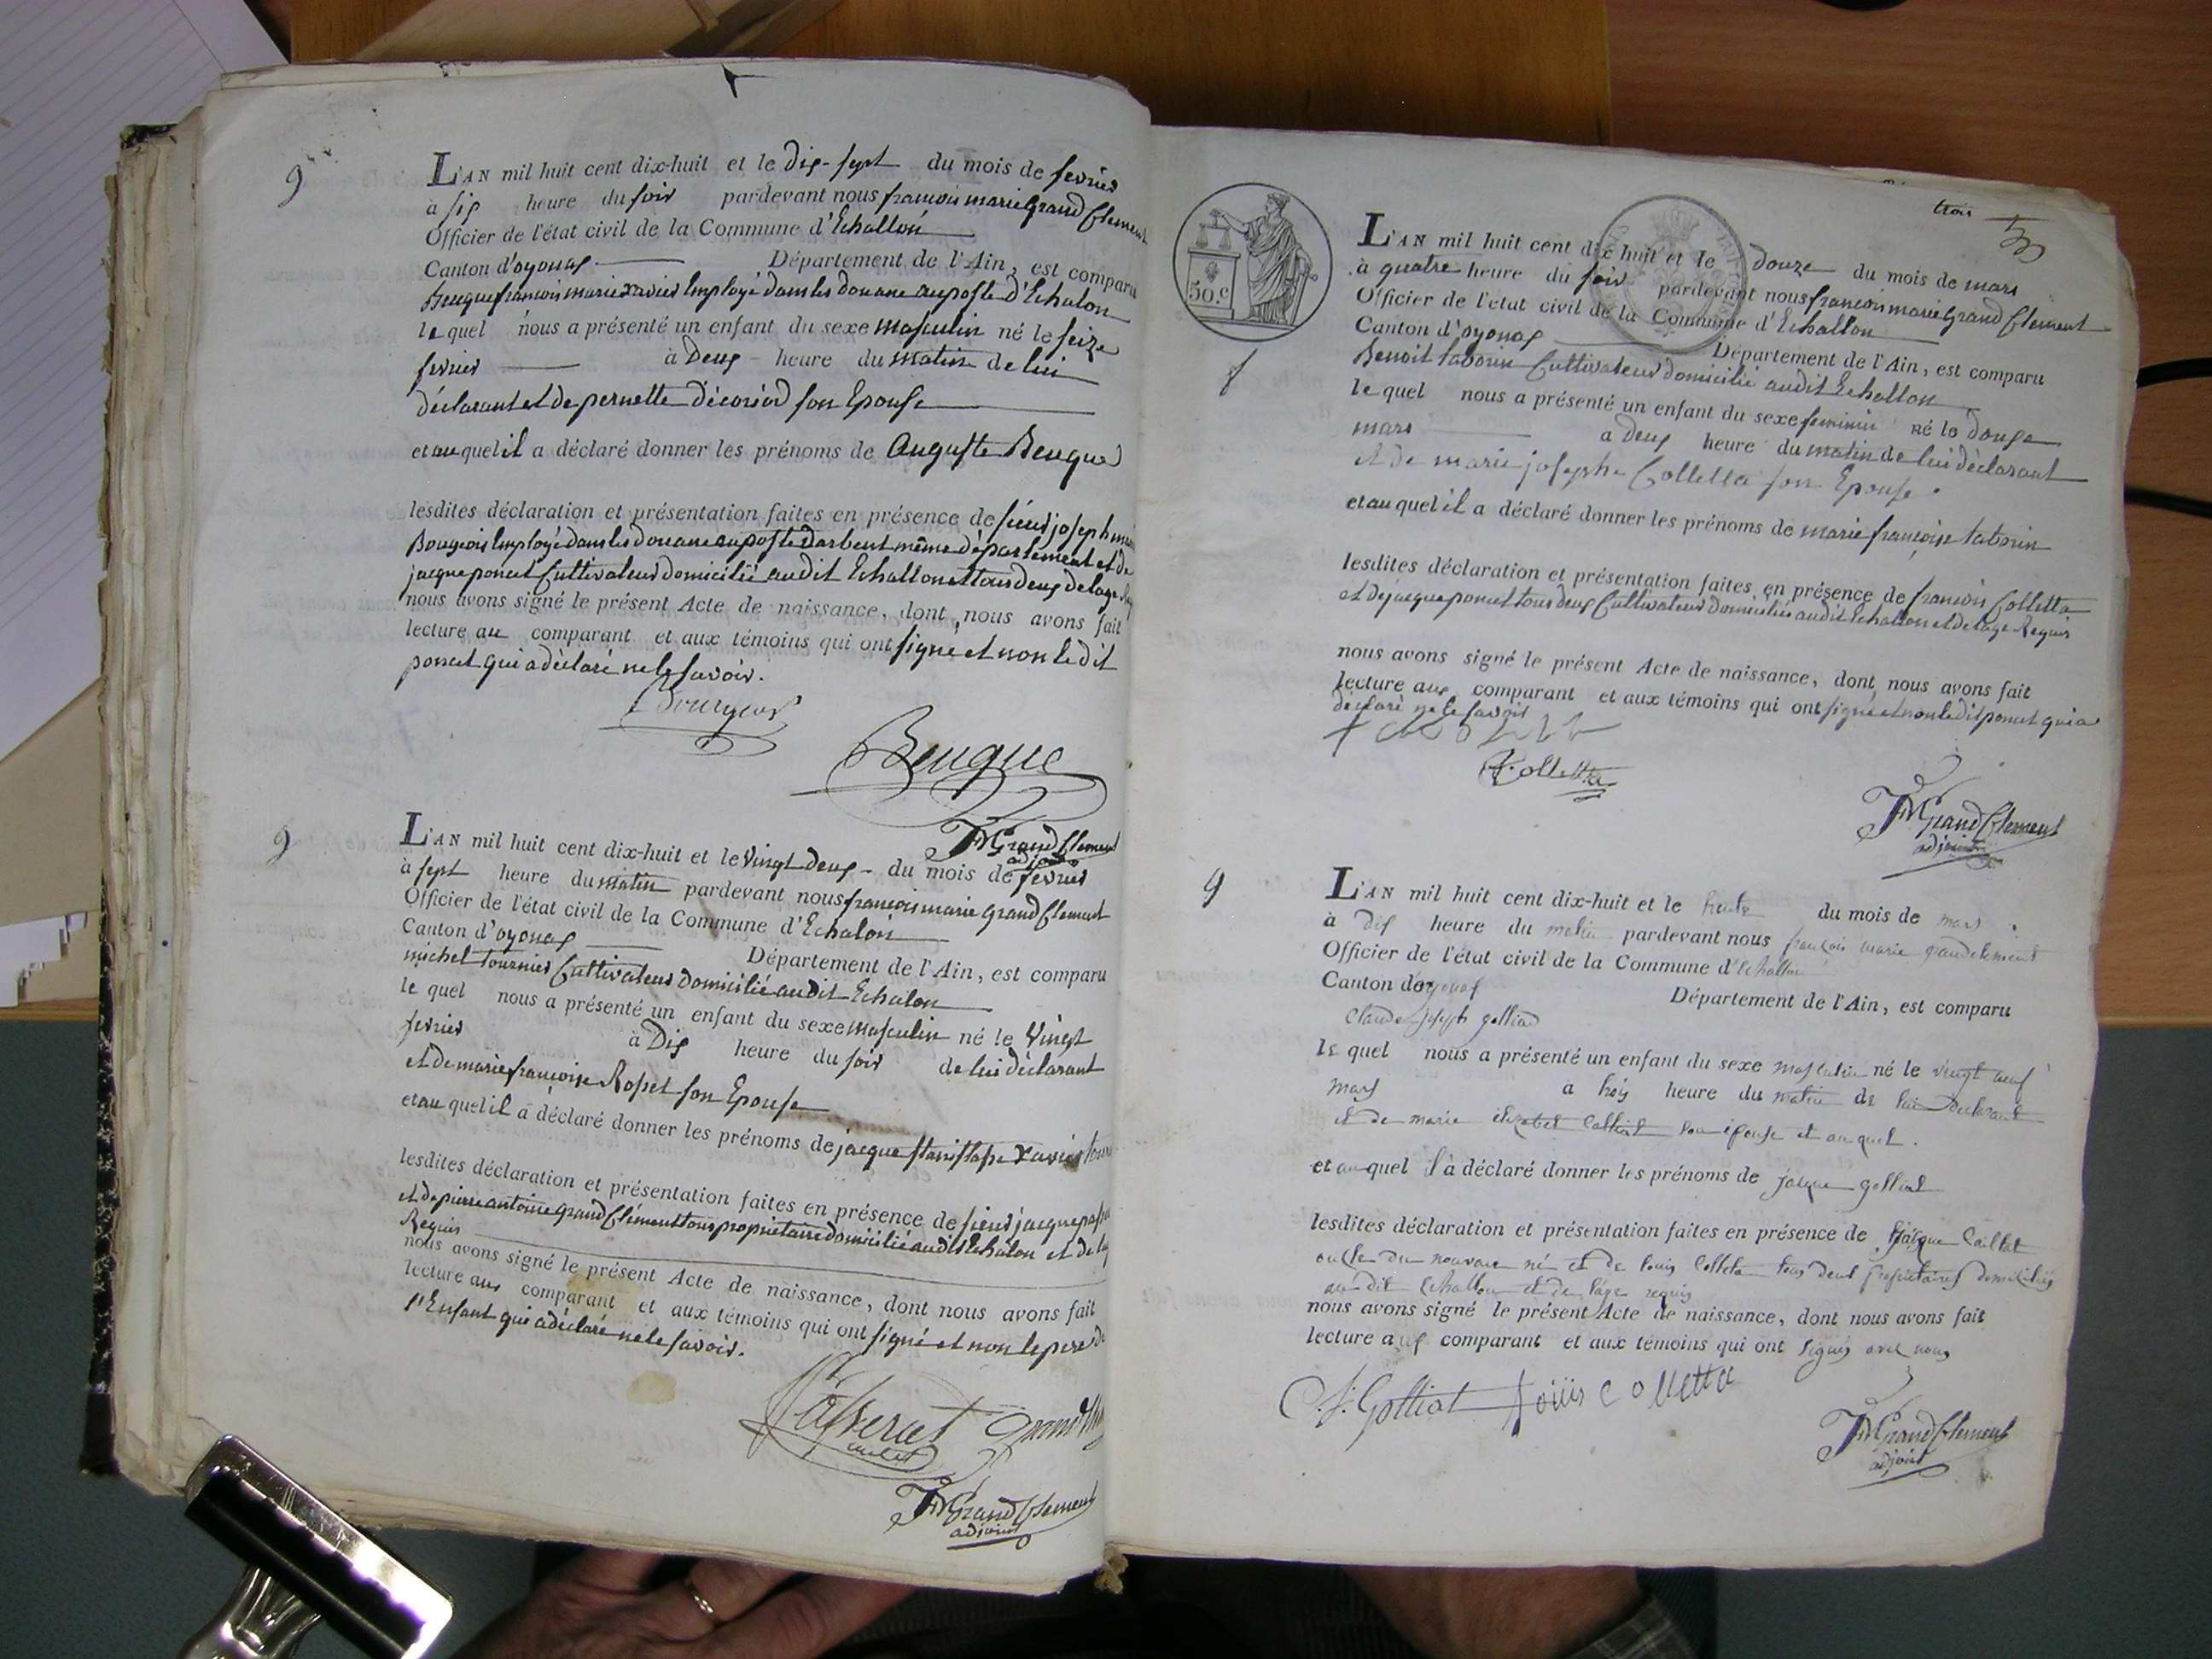 9
L'AN mil huit cent dix-huit et le dix-sept du mois de fevrier
à six heure du soir pardevant nous francois marie Grand Clement
Officier de l'état civil de la Commune d'Echallon
Canton d'oyonax Département de l'Ain, est comparu
Beuque francois marie xavier Employé dans les douane au poste d'Echalon
le quel nous a présenté un enfant du sexe masculin né le seize
fevrier à Deux heure du matin de lui
déclarant et de pernette son Epouse
et au quel il a déclaré donner les prénoms de Auguste Beuque
lesdites déclaration et présentation faites en présence de sieur joseph
Bourgeois Employé dans les douane au poste Darbent même département et de
jacque poncet Cultivateur domicilié audit Echallon et tous deux de lage
nous avons signé le présent Acte de naissance, dont nous avons fait
lecture au comparant et aux témoins qui ont signé et non le dit
poncet qui a déclaré ne le savoir.
Bourgeois
Beuque
FM Grand Clement
adjoint
9
L'AN mil huit cent dix-huit et le vingt deux du mois de fevrier
à sept heure du matin pardevant nous francois marie Grand Clement
Officier de l'état civil de la Commune d'Echalon
Canton d'oyonax Département de l'Ain, est comparu
michel tournier Cultivateur domicilié audit Echalon
le quel nous a présenté un enfant du sexe masculin né le Vingt
fevrier à Dix heure du soir de lui déclarant
et de marie francoise Rosset son Epouse
et au quel il a déclaré donner les prénoms de jacque stanislasse xavier
lesdites déclaration et présentation faites en présence de sieur jacque
et de pierre antoine Grand Clément tous propriétaire domicilié audit Echalon et de
Requis
nous avons signé le présent Acte de naissance, dont nous avons fait
lecture aux comparant et aux témoins qui ont signé et non le pere de
l'Enfant qui a déclaré ne le savoir.
FM Grand Clement
adjoint
trois
50.c
L'AN mil huit cent dix huit et le douze du mois de mars
à quatre heure du soir pardevant nous francois marie Grand Clement
Officier de l'état civil de la Commune d'Echallon
Canton d'oyonax Département de l'Ain, est comparu
Benoit taborin Cultivateur domicilié audit Echallon
le quel nous a présenté un enfant du sexe feminin né le douze
mars a deux heure du matin de lui déclarant
et de marie josephe Colletta son Epouse.
et au quel il a déclaré donner les prénoms de marie françoise taborin
lesdites déclaration et présentation faites en présence de francois Colletta
et de jacque poncet tous deux Cultivateur domiciliés audit Echallon et de lage Requis
nous avons signé le présent Acte de naissance, dont nous avons fait
lecture aux comparant et aux témoins qui ont signé et non le dit poncet qui a
déclaré ne le savoir
f. Colletta
FM Grand Clement
adjoint
9
L'AN mil huit cent dix-huit et le trente du mois de mars
à dix heure du matin pardevant nous françois marie grandclement
Officier de l'état civil de la Commune d'Echallon
Canton d'oyonax Département de l'Ain, est comparu
Claude joseph golliat
le quel nous a présenté un enfant du sexe masculin né le vingt neuf
mars à trois heure du matin de lui déclarant
et de marie elizabet son épouse et au quel.
et au quel il a déclaré donner les prénoms de jacque golliat
lesdites déclaration et présentation faites en présence de jacque
oncle du nouveau né et de louis Colleta tous deux propriétaires domiciliés
au dit Echallon et de l'âge requis
nous avons signé le présent Acte de naissance, dont nous avons fait
lecture aux comparant et aux témoins qui ont signés avec nous
C.J. Golliat Loüis Colletta
FM Grand Clement
adjoint